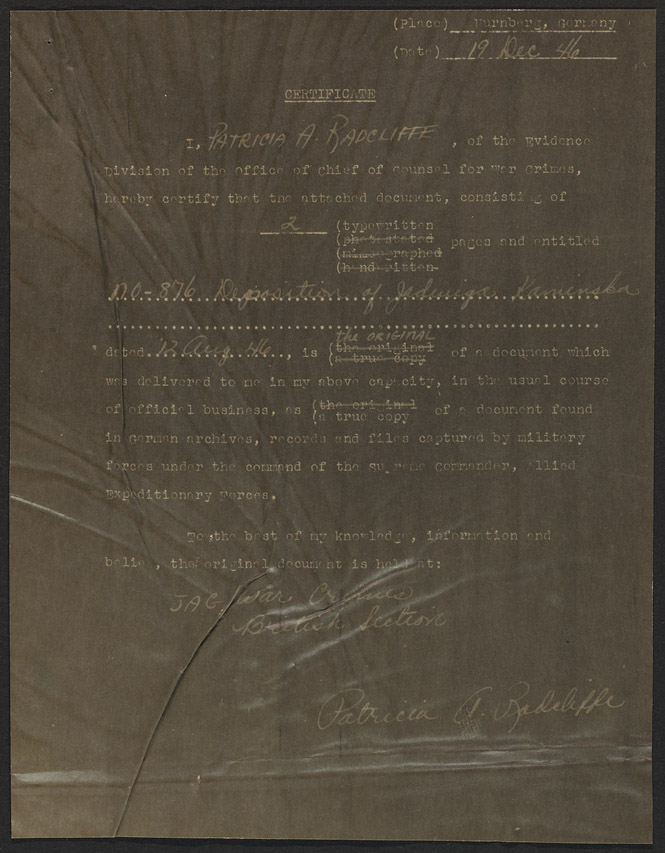 (Place) Nurnberg, Germany
(Date) 19 Dec 46
CERTIFICATE
I, PATRICIA A. RADCLIFFE, of the Evidence
Division of the Office of Chief of Counsel for War Crimes,
hereby certify that the attached document, consisting of
2 (typewritten
(photostated
(mimeographed
(handwritten
pages and entitled
NO-876 Deposition of Jadwiga Kaminska
dated 12 Aug. 46.., is (the original
the ORIGINAL
(a true copy of a document which
was delivered to me in my above capacity, in the usual course
of official business, as (the original
(a true copy of a document found
in German archives, records and files captured by military
forces under the command of the Supreme Commander, Allied
Expeditionary Forces.
To the best of my knowledge, information and
belief, the original document is held at:
JAG, War Crimes
British Section
Patricia A. Radcliffe